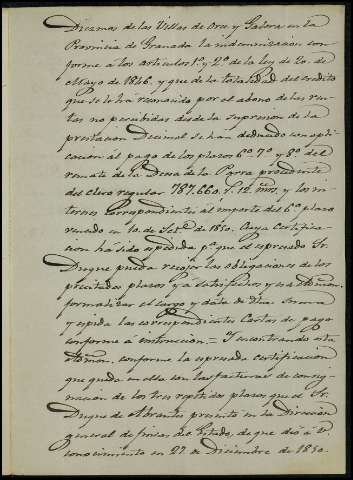 Diezmos de las Villas de Orce y Galera en la
Provincia de Granada la indemnizacion con
forme a los articulos 1º y 2º de la ley de 20 de
Mayo de 1846, y que de la totalidad del credito
que se le ha reconocido por el abono de las ren
tas no percibidas desde la supresion de la
prestacion Decimal se han deducido con aplic
acion al pago de los plazos 6º 7º y 8º del
remate de la Dehesa de la Parra procedente
del clero regular 787.660 r. 12 mrs, y los in
tereses correspondientes al importe del 6º plazo
vencido en 10 de Setᵉ de 1850. Cuya Certifica
cion ha sido espedida pª que el espresado Sr.
Duque pueda recojer las obligaciones de los
precitados plazos ya satisfechos y esa
formalizar el cargo y data de
y espida las correspondientes Cartas de pago
conforme a instruccion. = Y encontrando esta
conforme la espresada certificacion
que queda en ella con las facturas de consig
nacion de los tres repetidos plazos que el Sr.
Duque de Abrantes presentó en la Direccion
general de fincas del Estado, de que dió á
conocimiento en 27 de Diciembre de 1850.